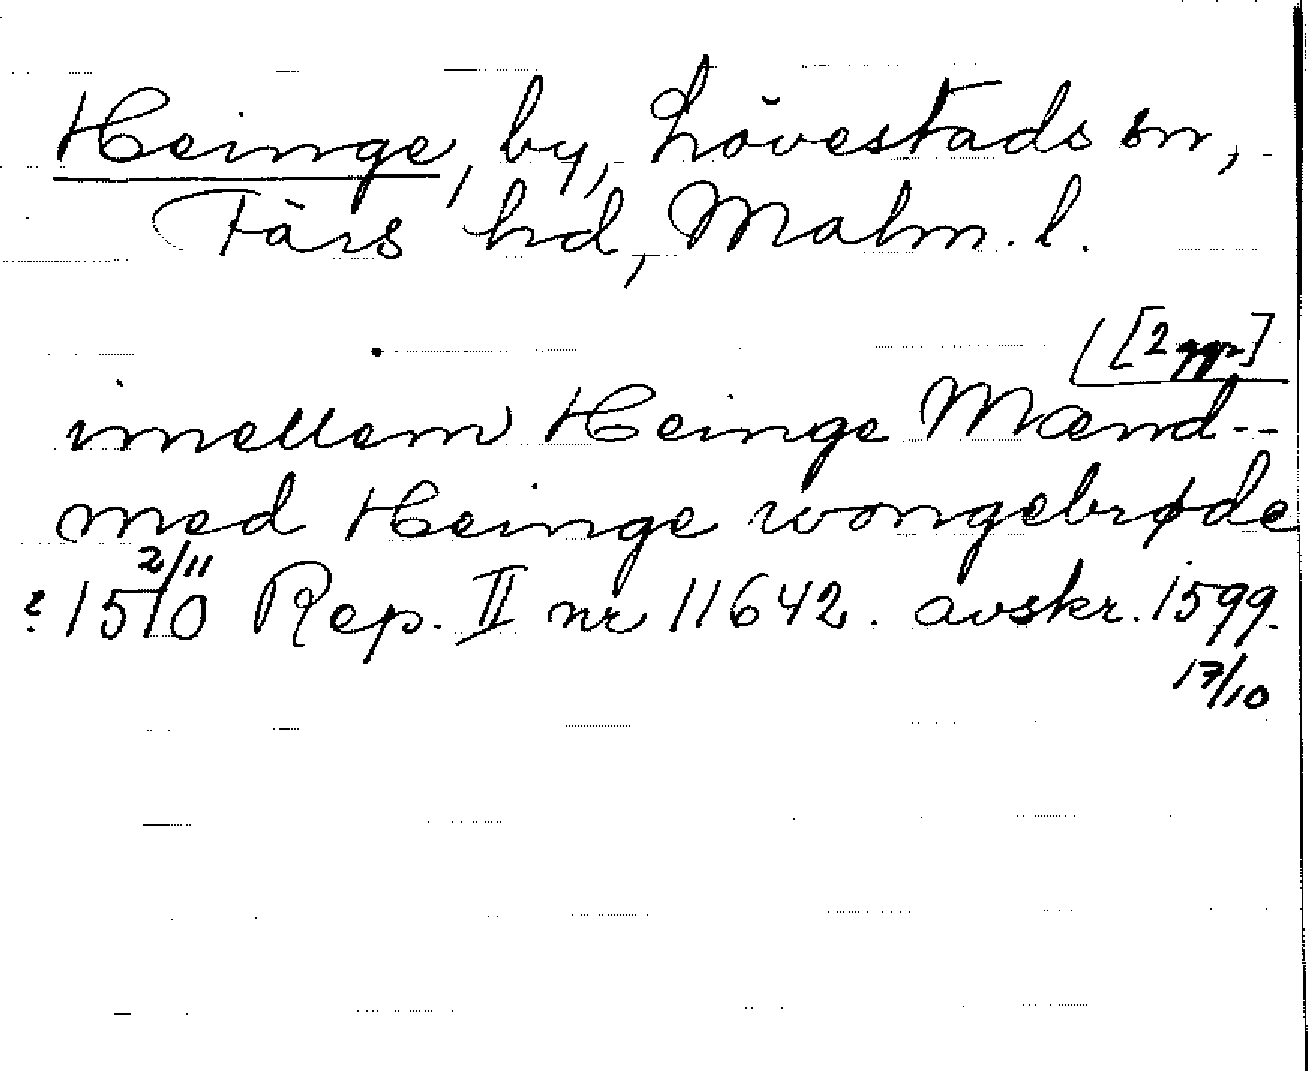 Heinge, by, Lövestads sn,
Färs hd, Malm. l.
[2 ggr]
imellem Heinge Mænd--
med Heinge wongebrøde
2/11
? 1510 Rep. II nr 11642. avskr. 1599.
17/10